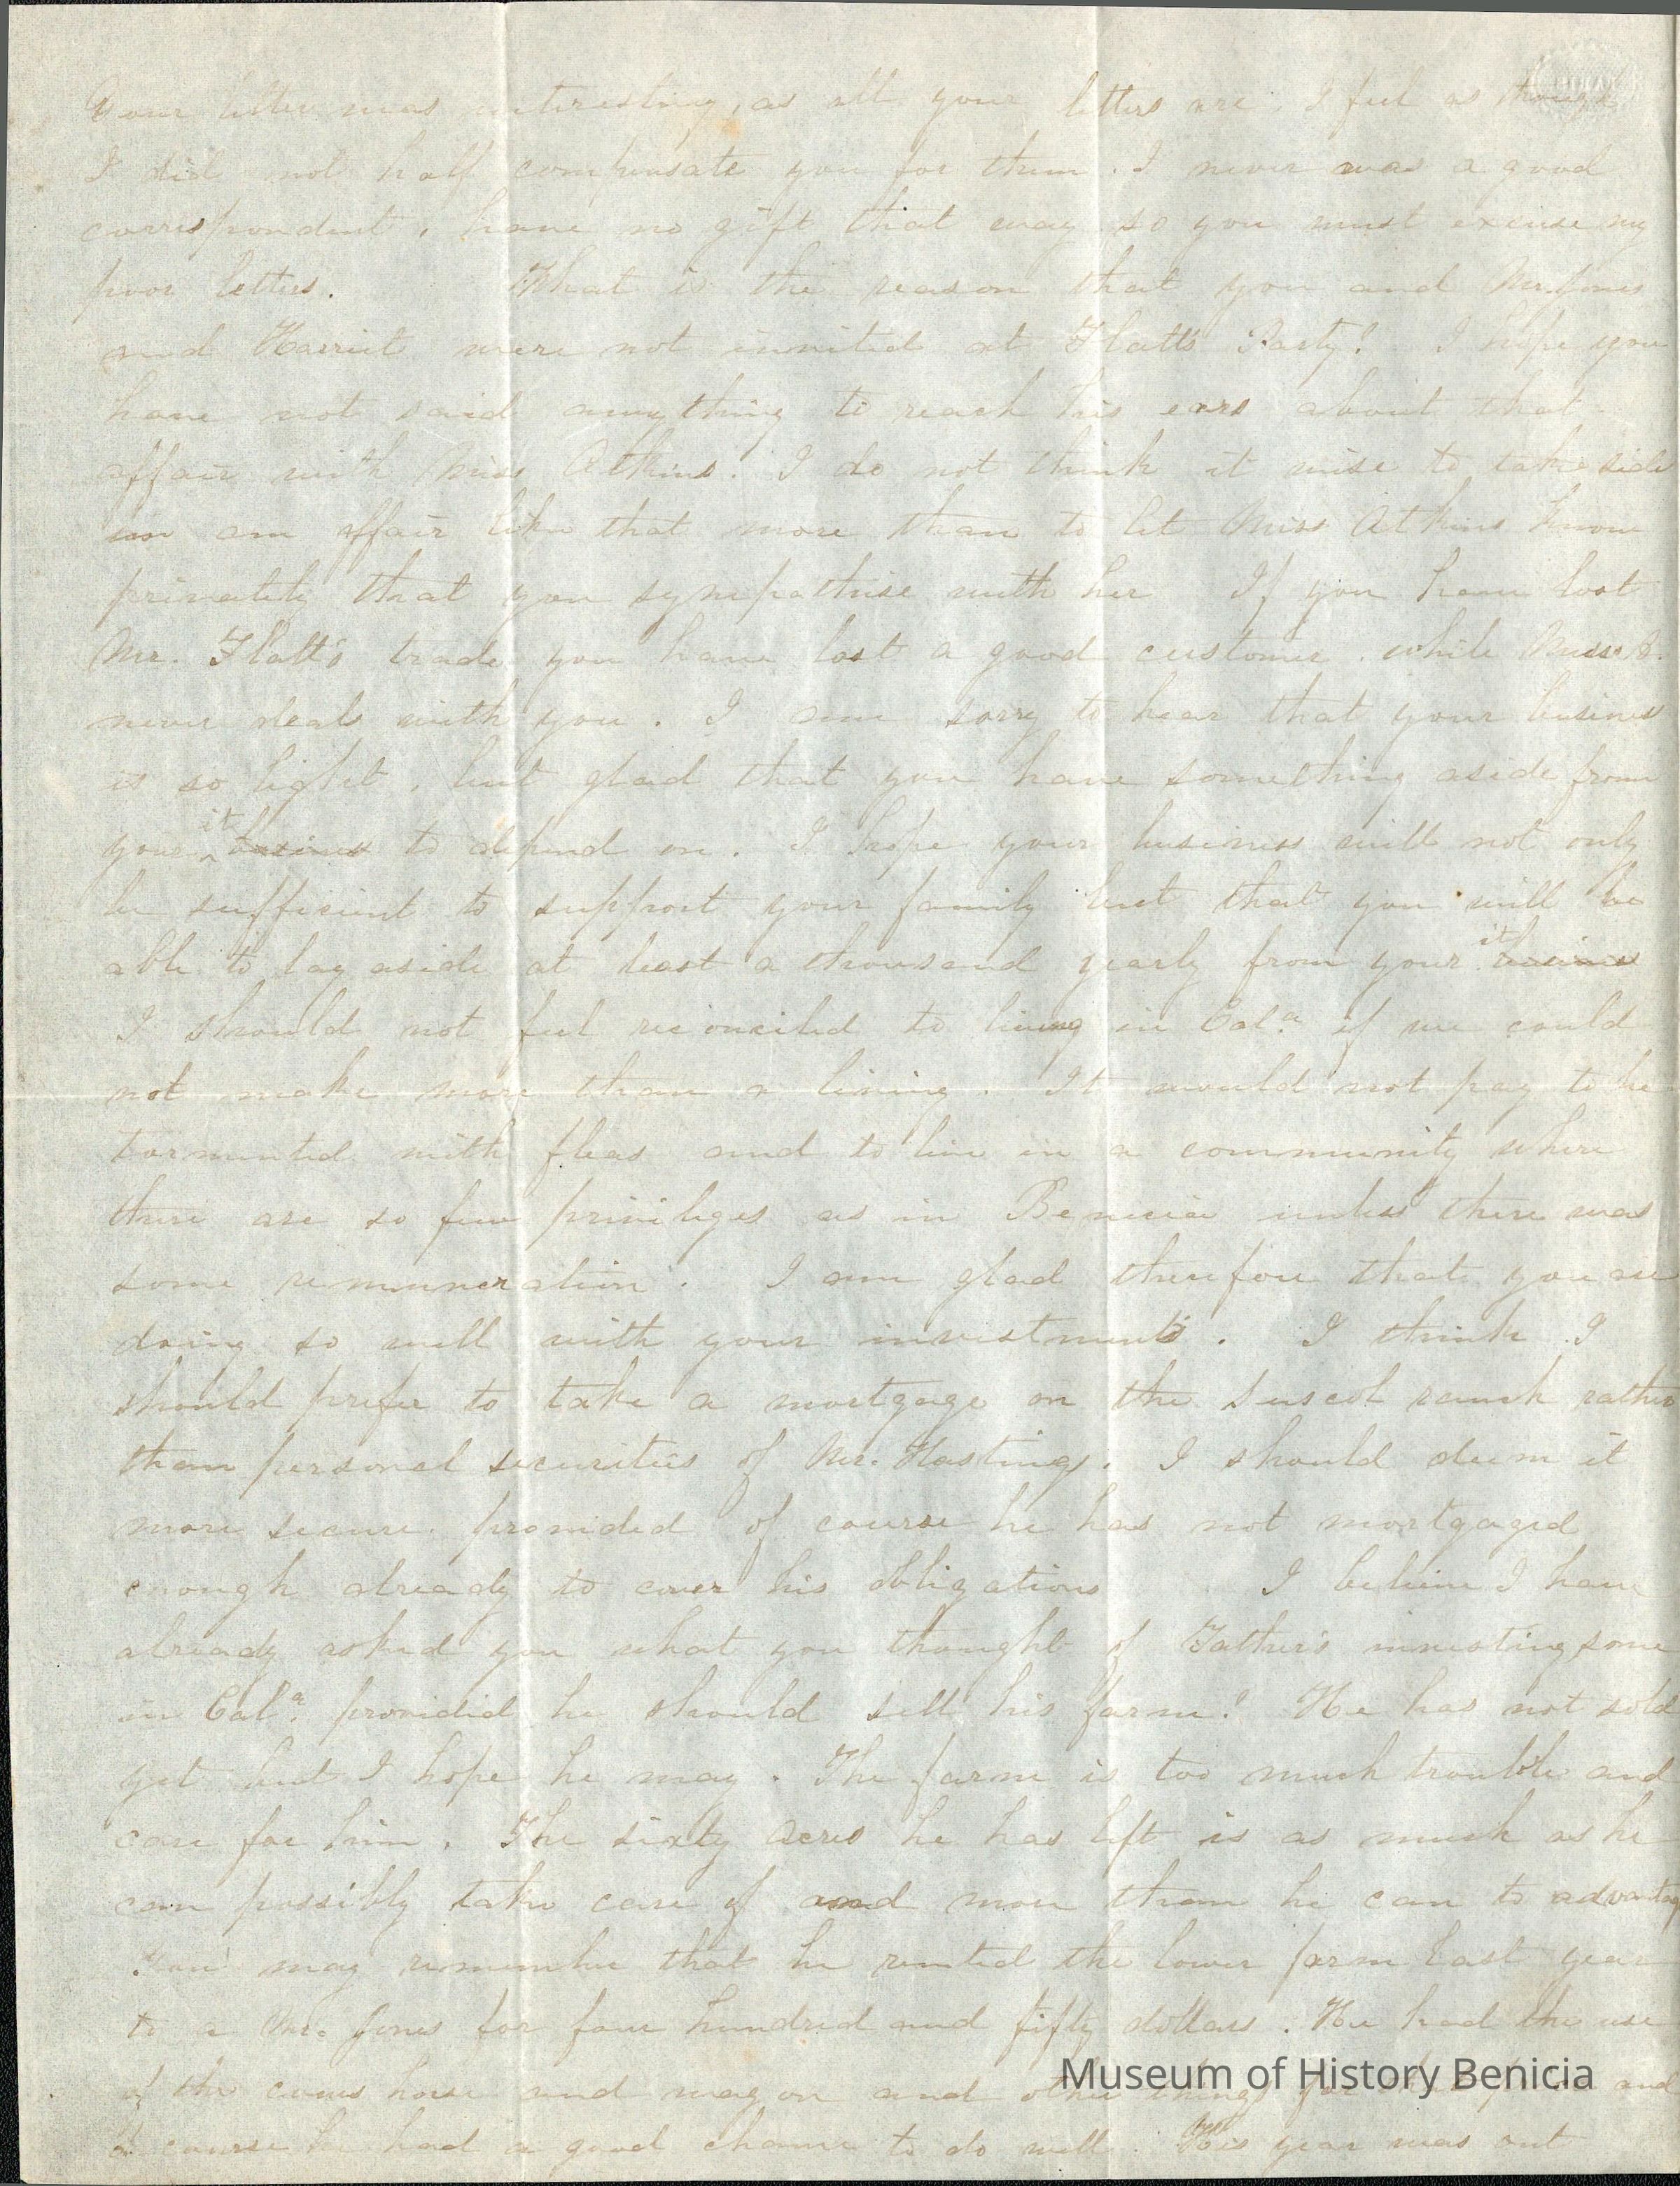 Your letter was interesting, as all your letters are. I feel as though
I did not half compensate you for them. I never was a good
correspondent, have no gift that way so you must excuse my
poor letters. What is the reason that you and Mr. Jones
and Harriet were not invited at Flatt's Party? I hope you
have not said anything to reach his ears about that
affair with Miss Atkins. I do not think it wise to take side
in an affair like that more than to let Miss Atkins know
privately that you sympathise with her If you have lost
Mr. Flatt's trade you have lost a good customer. while Miss A.
never deals with you. I am sorry to hear that your business
is so light, but glad that you have something aside from
your it business to depend on. I hope your business will not only
be sufficient to support your family but that you will be
able to lay aside at least a thousand yearly from your it business
I should not feel reconciled to living in Cal.a if we could
not make more than a living. It would not pay to be
tormented with fleas and to live in a community where
there are so few privileges as in Benicia unless there was
some remuneration. I am glad therefore that you are
doing so well with your investments. I think I
should prefer to take a mortgage on the Suscol ranch rather
than personal securities of Mr. Hastings. I should deem it
more secure provided of course he has not mortgaged
enough already to cover his obligations I believe I have
already asked you what you thought of Father's investing some
in Cal.a providid he should sell his farm? He has not sold
yet but I hope he may. The farm is too much trouble and
care for him. The sixty acres he has left is as much as he
can possibly take care of and more than he can to advantag
You may remember that he rented the lower farm last year
to a Mr. Jones for four hundred and fifty dollars. He had the use
of the cows horse and wagon and other things and
of course he had a good chance to do well. His year was out
Museum of History Benicia